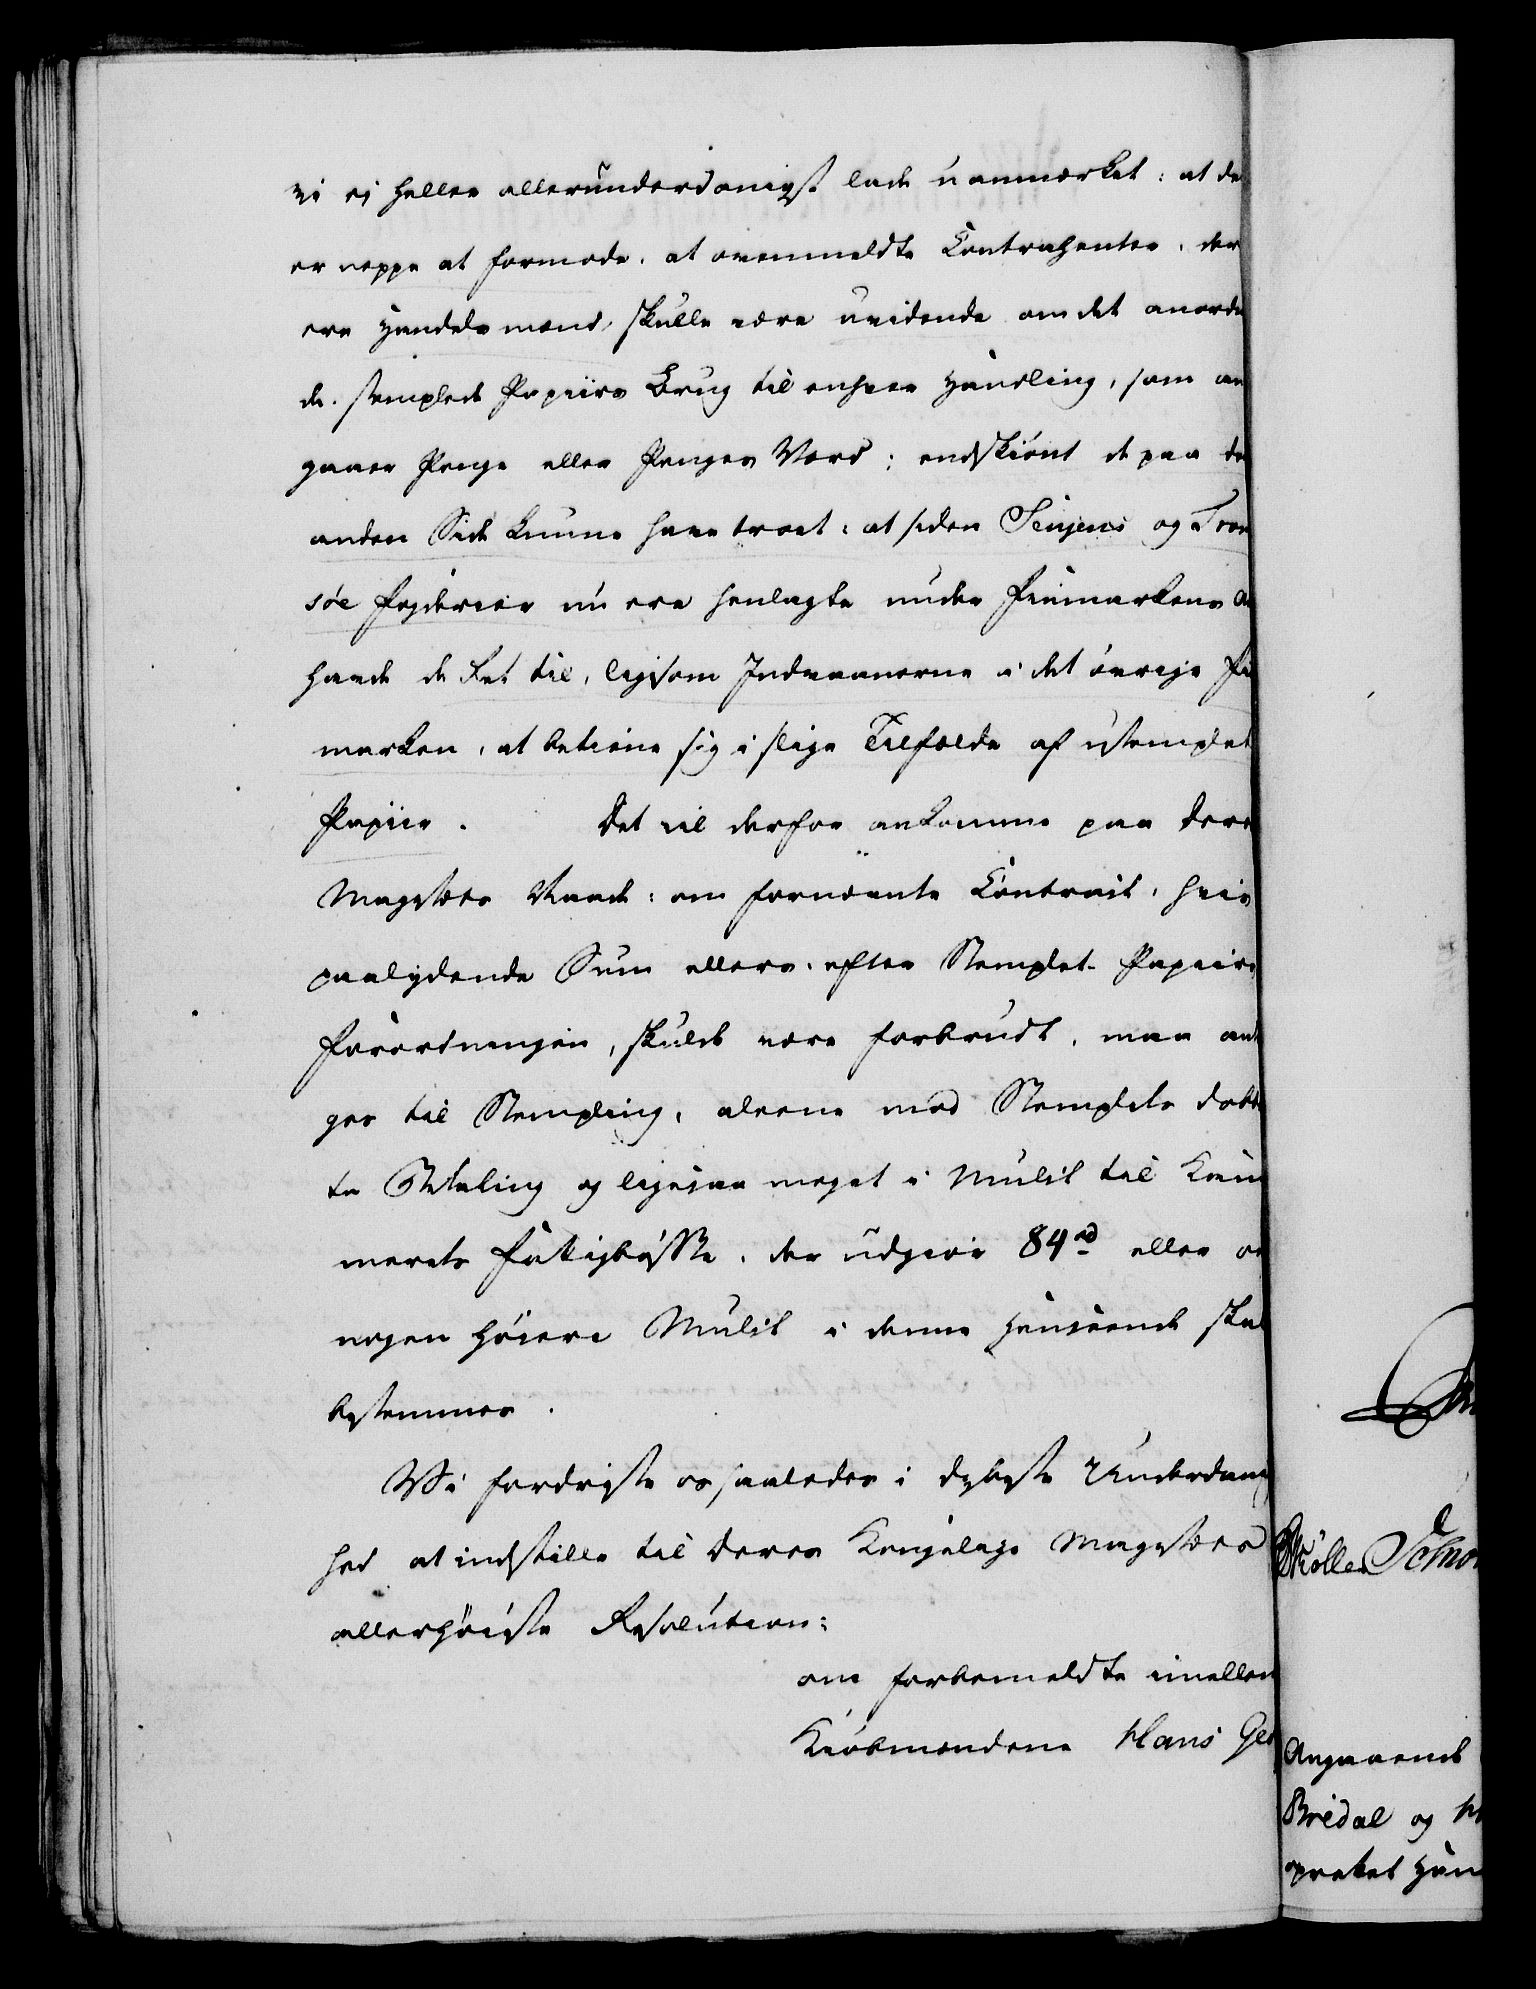 vi ej heller allerunderdanigst lade uanmærket: at de
er neppe at formode, at ovenmeldte Contrahenter, der
ere Handelsmænd, skulle være uvidende om det anord
de stemplede Papiirs Brug til enhver Handling, som an
gaaer Penge eller Penges Værd; endskiønt de paa de
anden Side kunne have troet: at siden Senjens og Trom
søe Fogderier nu ere henlagte under Finmarkens A
havde de Ret til, ligesom Indvaanerne i det øvrige Fi
marken, at betiene sig i slige Tilfælde af ustemplet
Papiir. Det vil derfor ankomme paa Dere
Majestæts Naade: om fornævnte Contract, hvis
paalydende Sum ellers, efter Stemplet Papiirs
Forordningen, skulde være forbrudt, maa anta
ges til Stempling, alene med Stemplets dobb
te Betaling og ligesaa meget i Mulct til Kam
merets Fattigbøsse, der udgiør 84 rd eller om
nogen høiere Mulct i denne Henseende skal
bestemmes.
Vi fordriste os saaledes i dybeste Underdanig
hed at indstille til Deres Kongelige Majestæts
allerhøieste Resolution:
om forbemeldte imellem
Kiøbmændene Hans Ge
Møller Schmo
Angaaende
Bredal og
oprettet Han